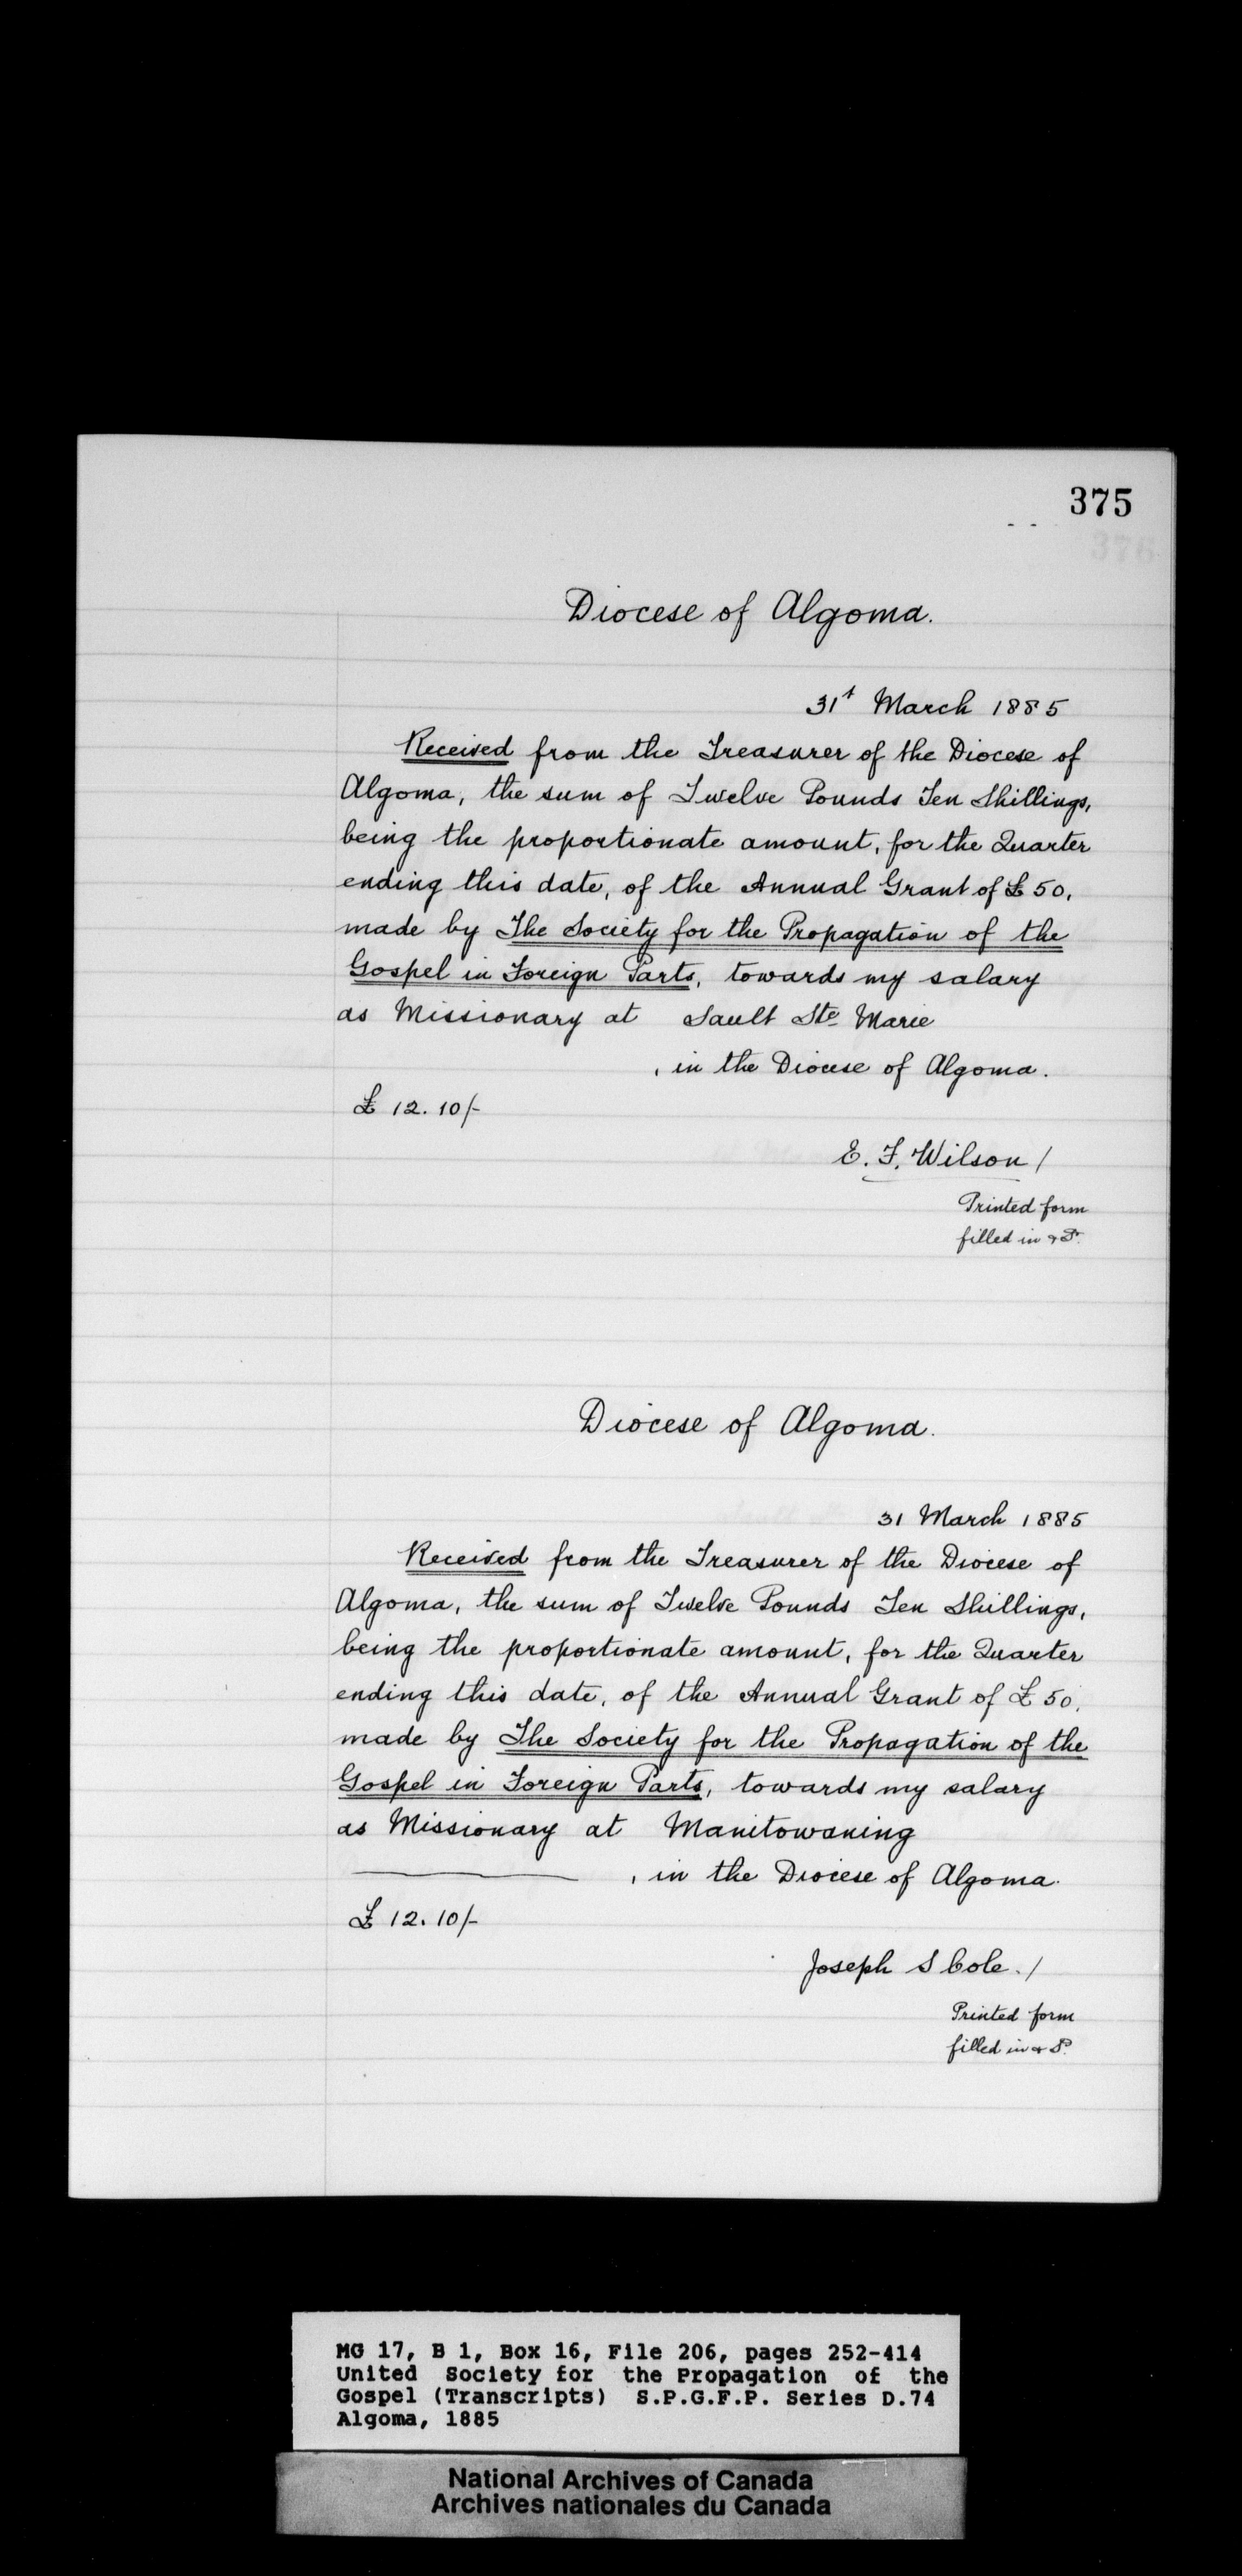 375
Diocese of Algoma.
31st March 1885
Received from the Treasurer of the Diocese of
Algoma, the sum of Twelve Pounds Ten Shillings,
being the proportionate amount, for the Quarter
ending this date, of the Annual Grant of £50,
made by The Society for the Propagation of the
Gospel in Foreign Parts, towards my salary
as Missionary at Sault Ste Marie
, in the Diocese of Algoma.
£ 12. 10/-
E. F. Wilson /
Printed form
filled in &
Diocese of Algoma.
31 March 1885
Received from the Treasurer of the Diocese of
Algoma, the sum of Twelve Pounds Ten Shillings,
being the proportionate amount, for the Quarter
ending this date, of the Annual Grant of £ 50,
made by The Society for the Propagation of the
Gospel in Foreign Parts, towards my salary
as Missionary at Manitowaning
, in the Diocese of Algoma.
£ 12. 10/-
Joseph S Cole. /
Printed form
filled in &
MG 17, B 1, Box 16, File 206, pages 252-414
United Society for the Propagation of the
Gospel (Transcripts) S.P.G.F.P. Series D.74
Algoma, 1885
National Archives of Canada
Archives nationales du Canada